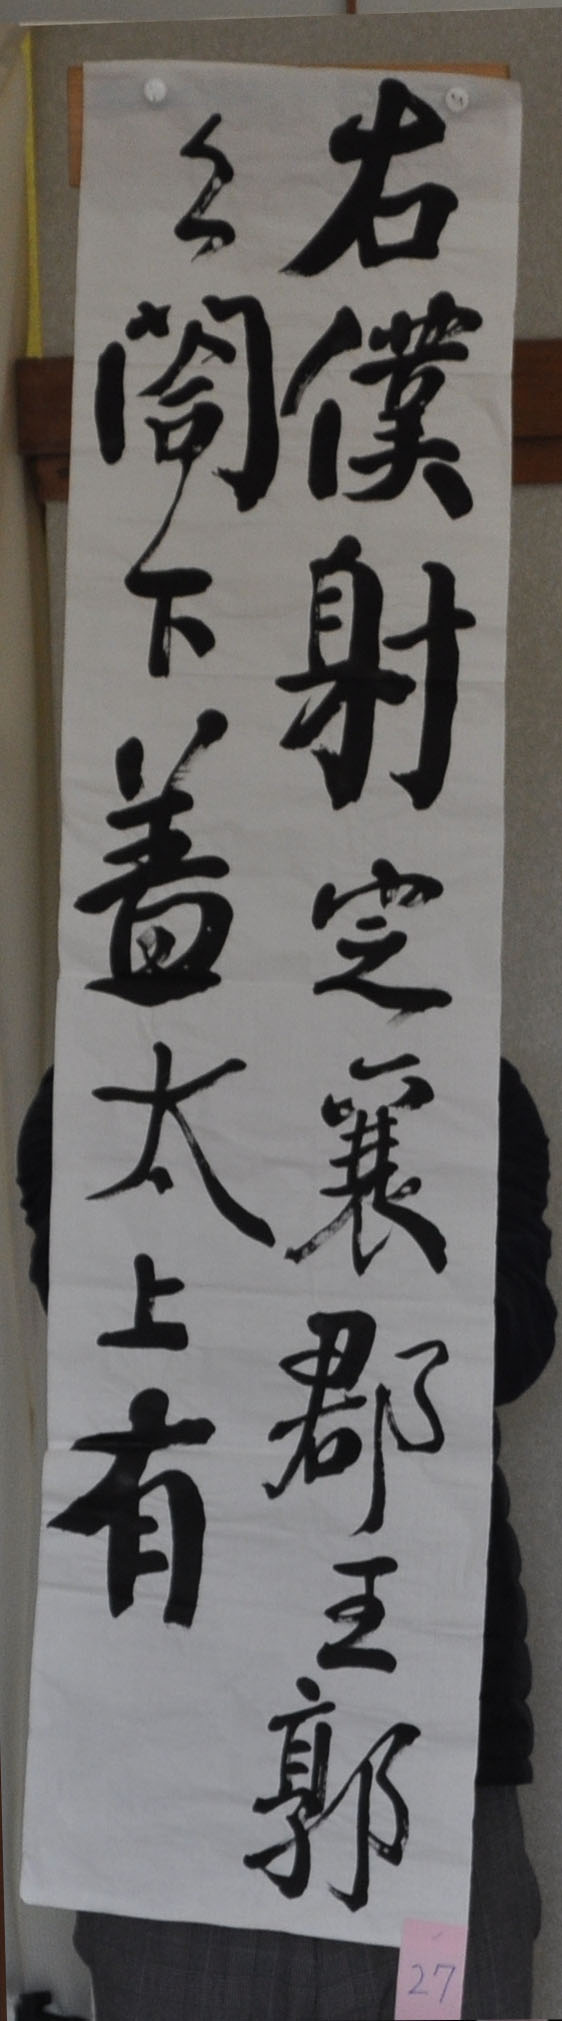 右僕射定襄郡王郭
公閤下蓋太上有
27